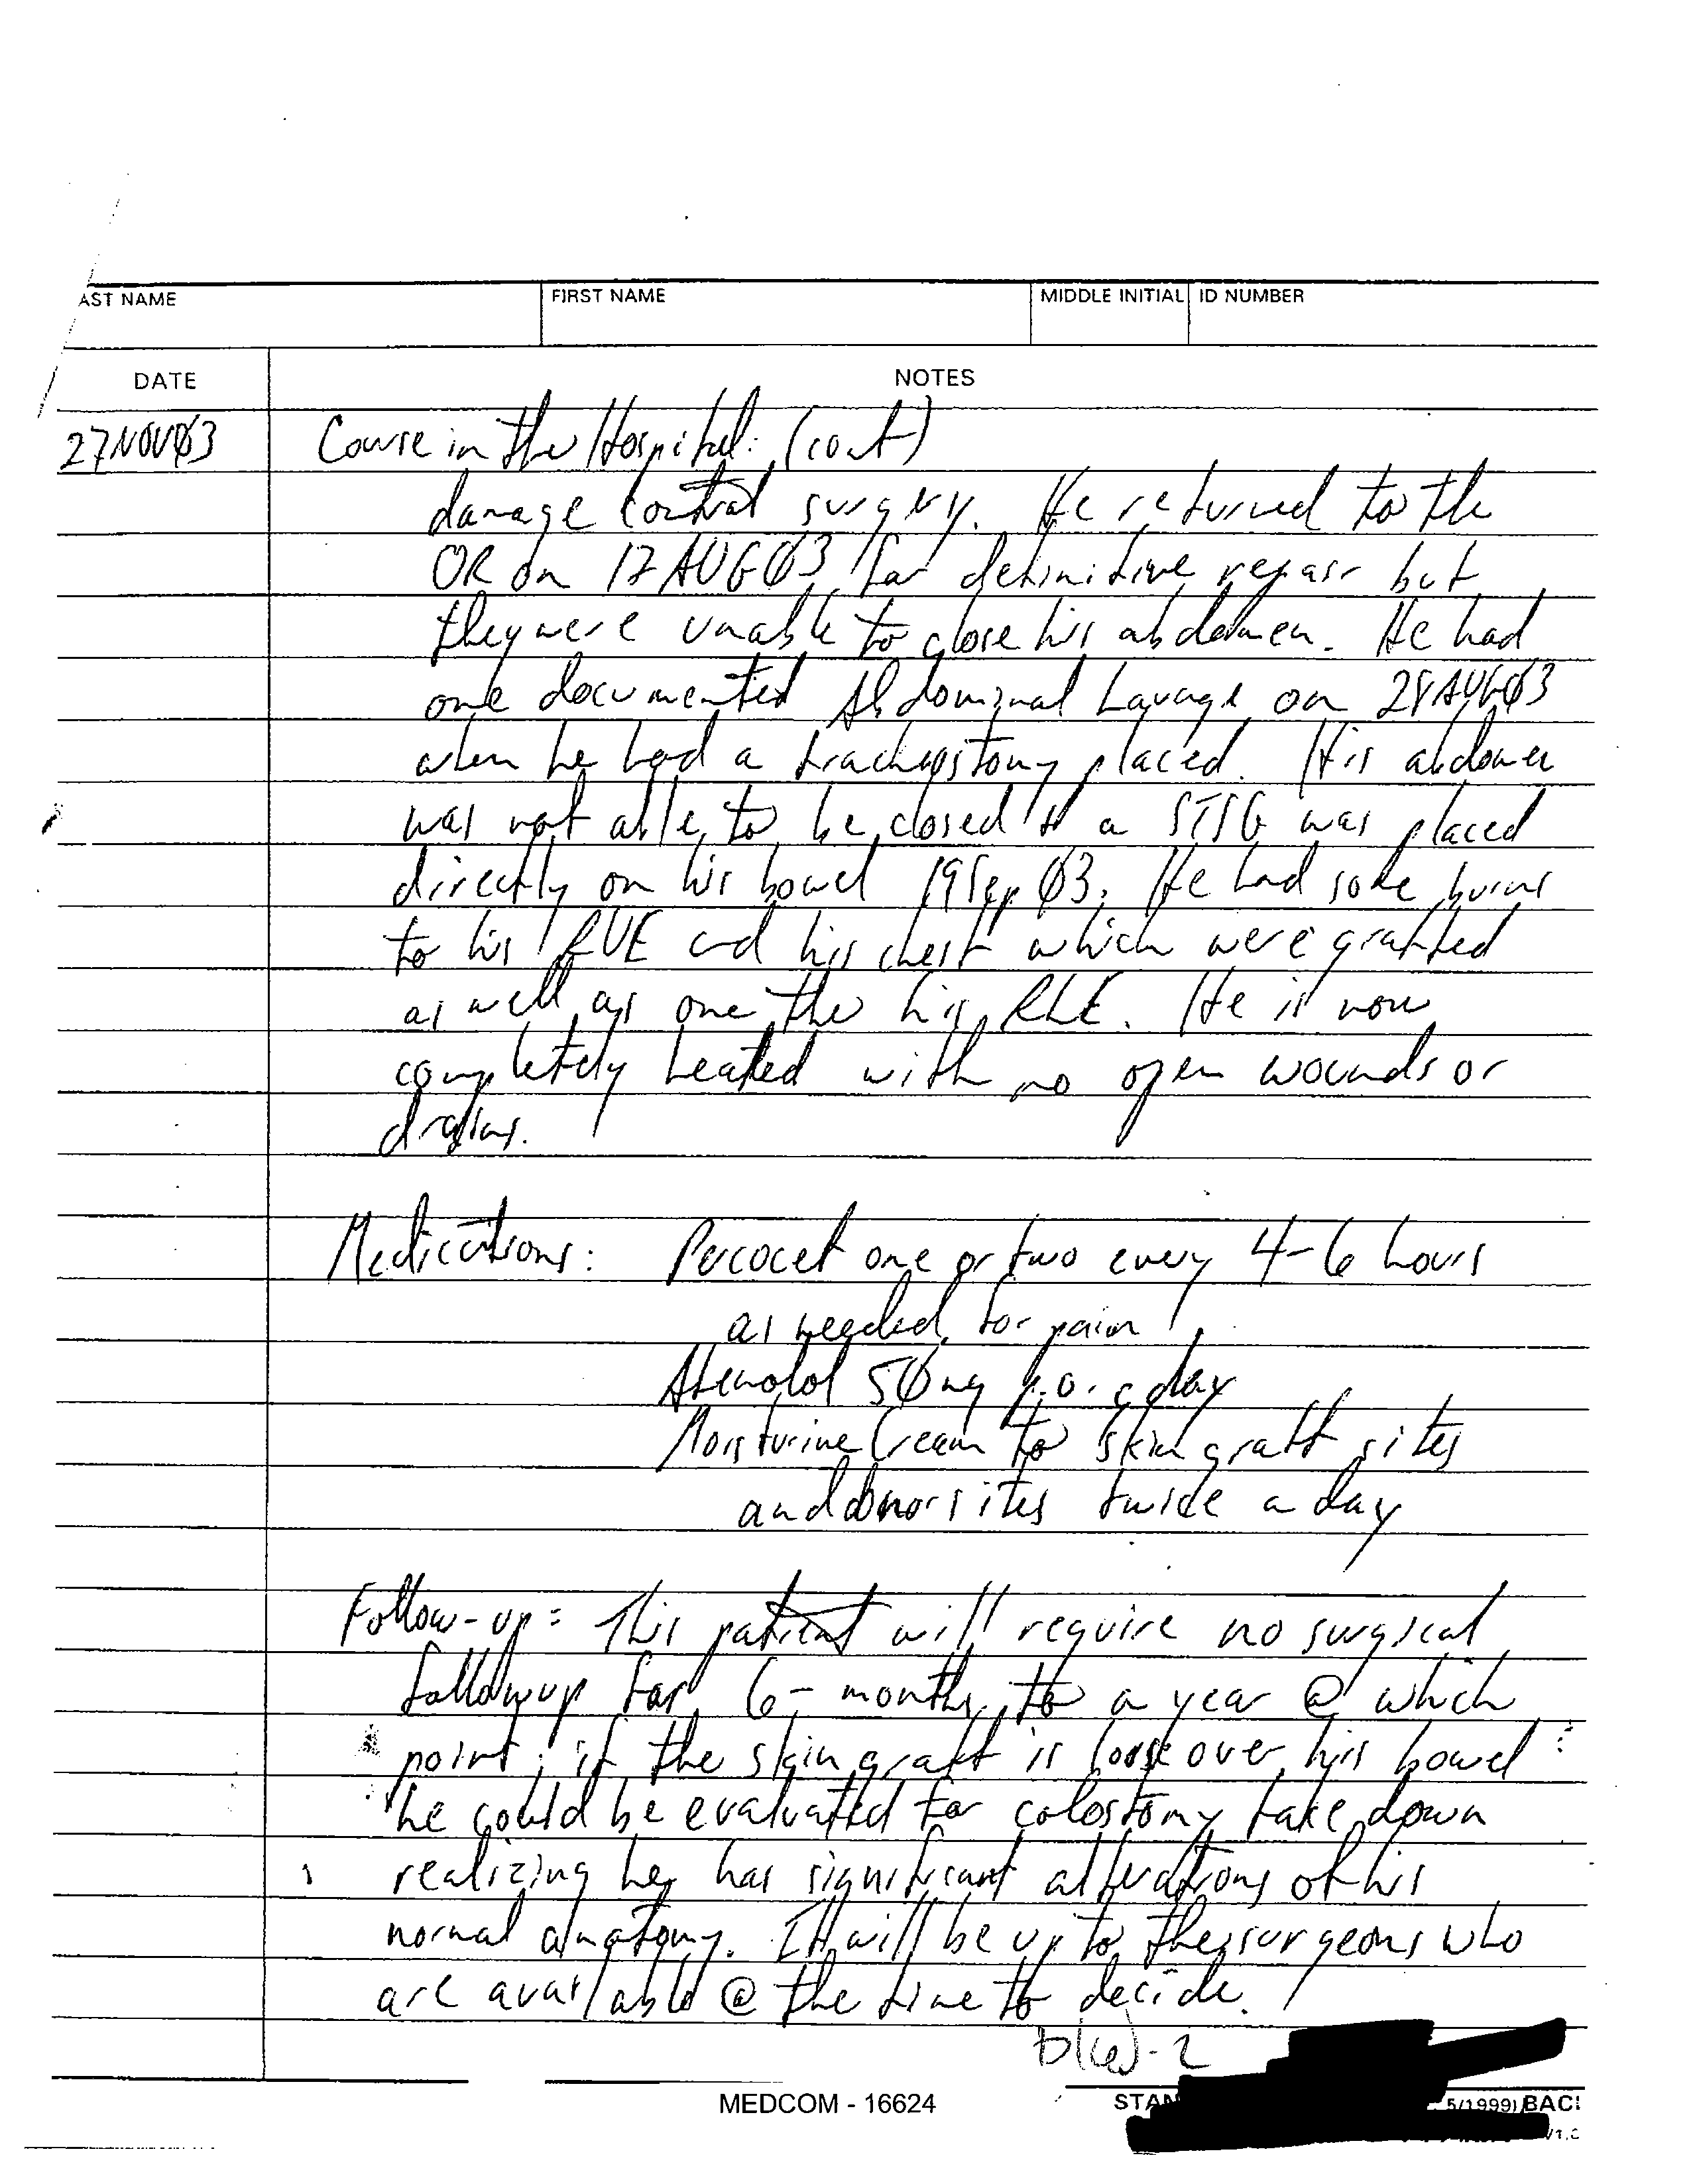 AST NAME FIRST NAME MIDDLE INITIAL ID NUMBER
DATE NOTES
27NOV03 Course in the Hospital: (cont)
damage control surgery. He returned to the
OR on 12 AUG 03 for definitive repair but
they were unable to close his abdomen. He had
one documented Abdominal Lavage on 28AUG03
when he had a tracheostomy placed. His abdomen
was not able to be closed & a STSG was placed
directly on his bowel 19Sep 03. He had some burns
to his RUE and his chest which were grafted
as well as one the his RLE. He is now
completely healed with no open wounds or
drains.
Medications: Percocet one or two every 4-6 hours
as needed for pain
Atenolol 50mg p.o. q day
Moisturine Cream to skin graft sites
and donor sites twice a day
Follow-up: This patient will require no surgical
followup for 6-months to a year @ which
point; if the skin graft is loose over his bowel
he could be evaluated for colostomy take down
realizing he has significant alterations of his
normal anatomy. It will be up to the surgeons who
are available @ the time to decide.
b(6)-2
MEDCOM - 16624 STAN 5/1999) BACK
V1.0